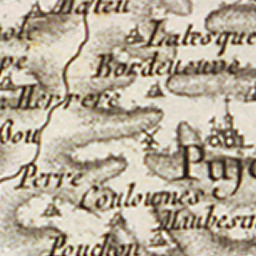 Mateu
Latesque
Bordeneuve
Merrere
Bou
Pujo
Perre
Coulounes
Maubesin
Pouchon